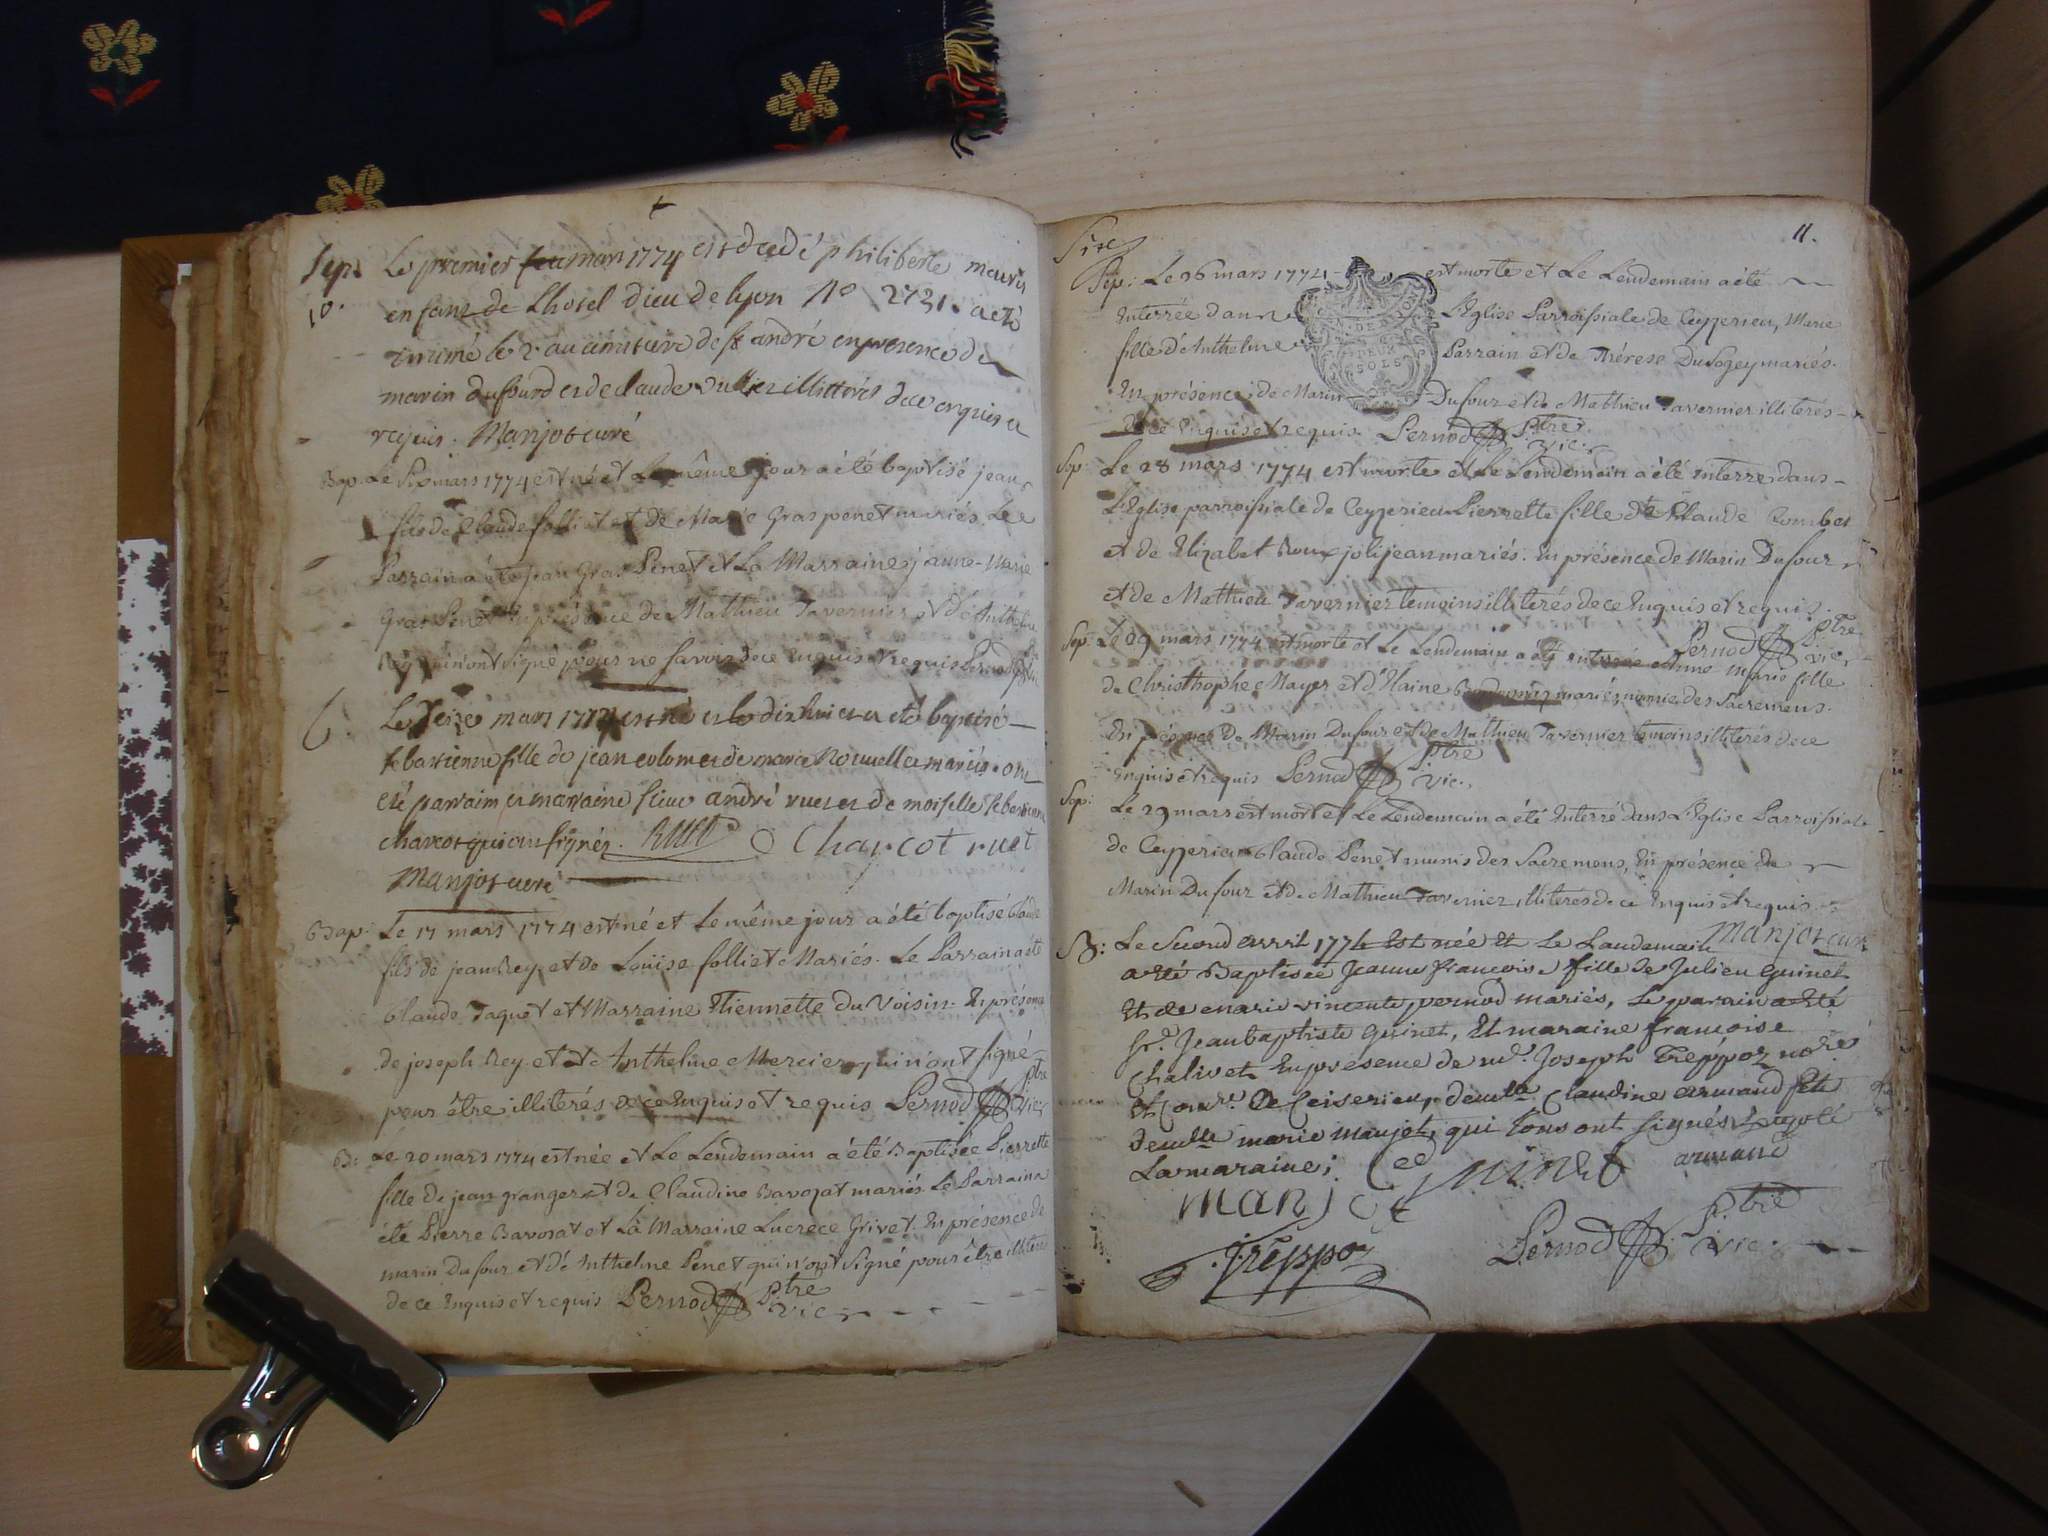 Sep. Le premier mars 1774 est decedé philiberte mauris
10. enfant de Lhotel dieu de lyon No 2731. a eté
inumé le 2. au cimitiere de st andré en presence de
marin dufourd et de claude vullier illitterés de ce enquis et
requis. Manjot curé
Bap. Le mars 1774 est né et Le même jour a été baptisé jean
fils de Claude folliet et de Marie Gras penet mariés. Le
Parrain a été jean Gras Penet et La Marraine jeanne-Marie
Gras Penet En présence de Mathieu Tavernier et d'Anthelme
Rey qui n'ont Signé pour ne savoir de ce Enquis et requis Pernod
6. Le Seize mars 1774 est né et le dixhuit a eté baptisé
sebastienne fille de jean colom et de marie Nouvellet mariés. ont
eté parrain et marraine sieur andré ruet et demoiselle sebastienne
charcot qui ont signés. RUET Charcot ruet
Manjot curé
Bap: Le 17 mars 1774 est né et le même jour a été baptisé Claude
fils de jean Rey et de Loüise folliet Mariés. Le Parrain a été
Claude Jaquet et Marraine Etiennette Du Voisin. En présence
de joseph Rey et de Anthelme Mercier qui n'ont signé
pour être illiterés de ce Enquis et requis Pernod Ptre vic
B: Le 20 mars 1774 est née et Le Lendemain a été Baptisée Pierrette
fille de jean granger et de Claudine Bavozat mariés Le Parrain a
été Pierre Bavozat et La Marraine Lucrece Grivet. En présence de
marin Dufour et d'Anthelme Penet qui n'ont Signé pour être illiterés
de ce Enquis et requis Pernod Ptre vic
Six
11.
Sep: Le 26 mars 1774 est morte et Le Lendemain a été
Enterrée dans L'Eglise Parroissiale de Ceyzerieu, Marie
fille d'Anthelme Parrain et de Thérese Du Sogey mariés.
En présence de Marin Dufour et de Mathieu Tavernier illiterés
de ce Enquis et requis. Pernod Ptre vic.
DEUX SOLS
Sep: Le 28 mars 1774 est morte et Le Lendemain a été Enterré dans
L'Eglise parroissiale de Ceyzerieu Pierrette fille de Claude Combet
et de Elizabet Roux joli jean mariés. En présence de Marin Dufour
et de Mathieu Tavernier temoins illiterés de ce Enquis et requis.
Pernod Ptre vic
Sep: Le 29 mars 1774 est morte et Le Lendemain a été enterrée Anne Marie fille
de Christhophe Mayer et d'Elaine mariés munie des Sacremens.
En présence De Marin Dufour et de Mathieu Tavernier temoins illiterés de ce
enquis et requis Pernod Ptre vic.
Sep: Le 29 mars est mort et Le Lendemain a été Enterré dans L'Eglise Parroissiale
de Ceyzerieu Claude Penet munis des Sacremens, En présence de
Marin Dufour et de Mathieu Tavernier, illiteres de ce Enquis et requis.
Manjot curé
B: Le Second avril 1774 Est née Et Le Landemain
a Eté Baptisée Jeanne françoise fille de Julien Guinet
Et de marie vincente pernod mariés, Le parain a Eté
sr. Jean baptiste Guinet, Et maraine françoise
Chalivet En presence de mr. Joseph Treppoz nore
Et Comre. De Ceiserieu, demlle Claudine armand Et de
demlle marie manjot, qui tous ont signés
La maraine;
Guinet armand
manjot
Treppoz Pernod Ptre vic.